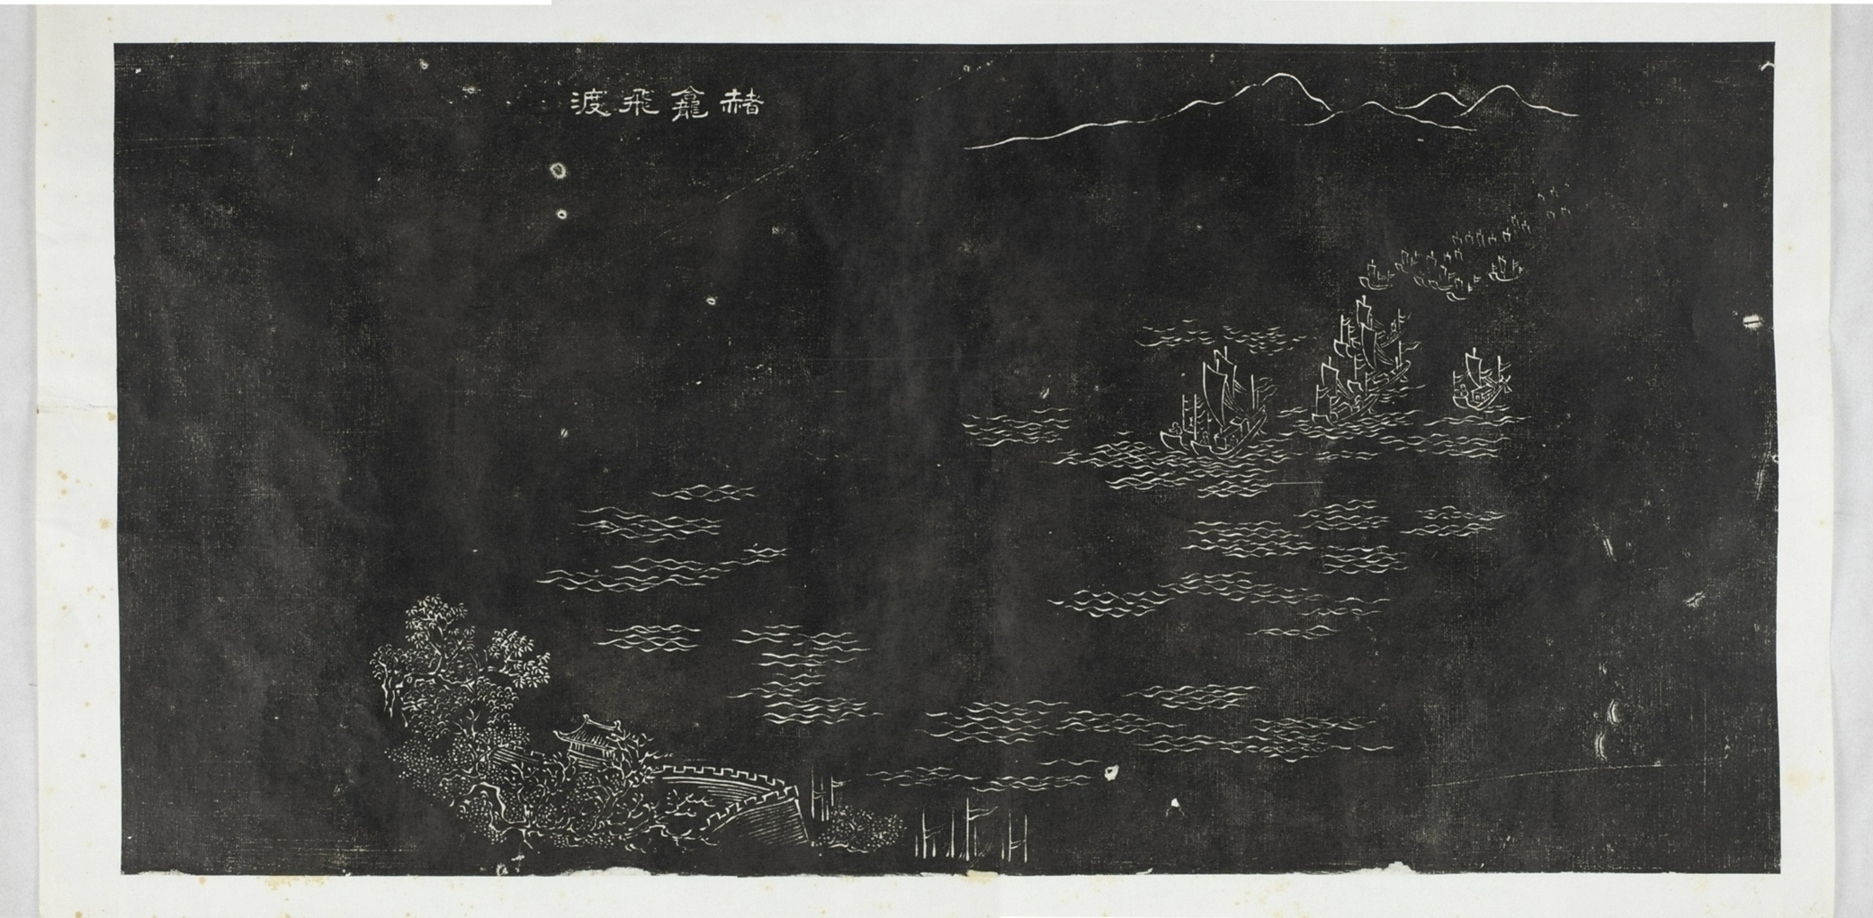 赭龕飛渡